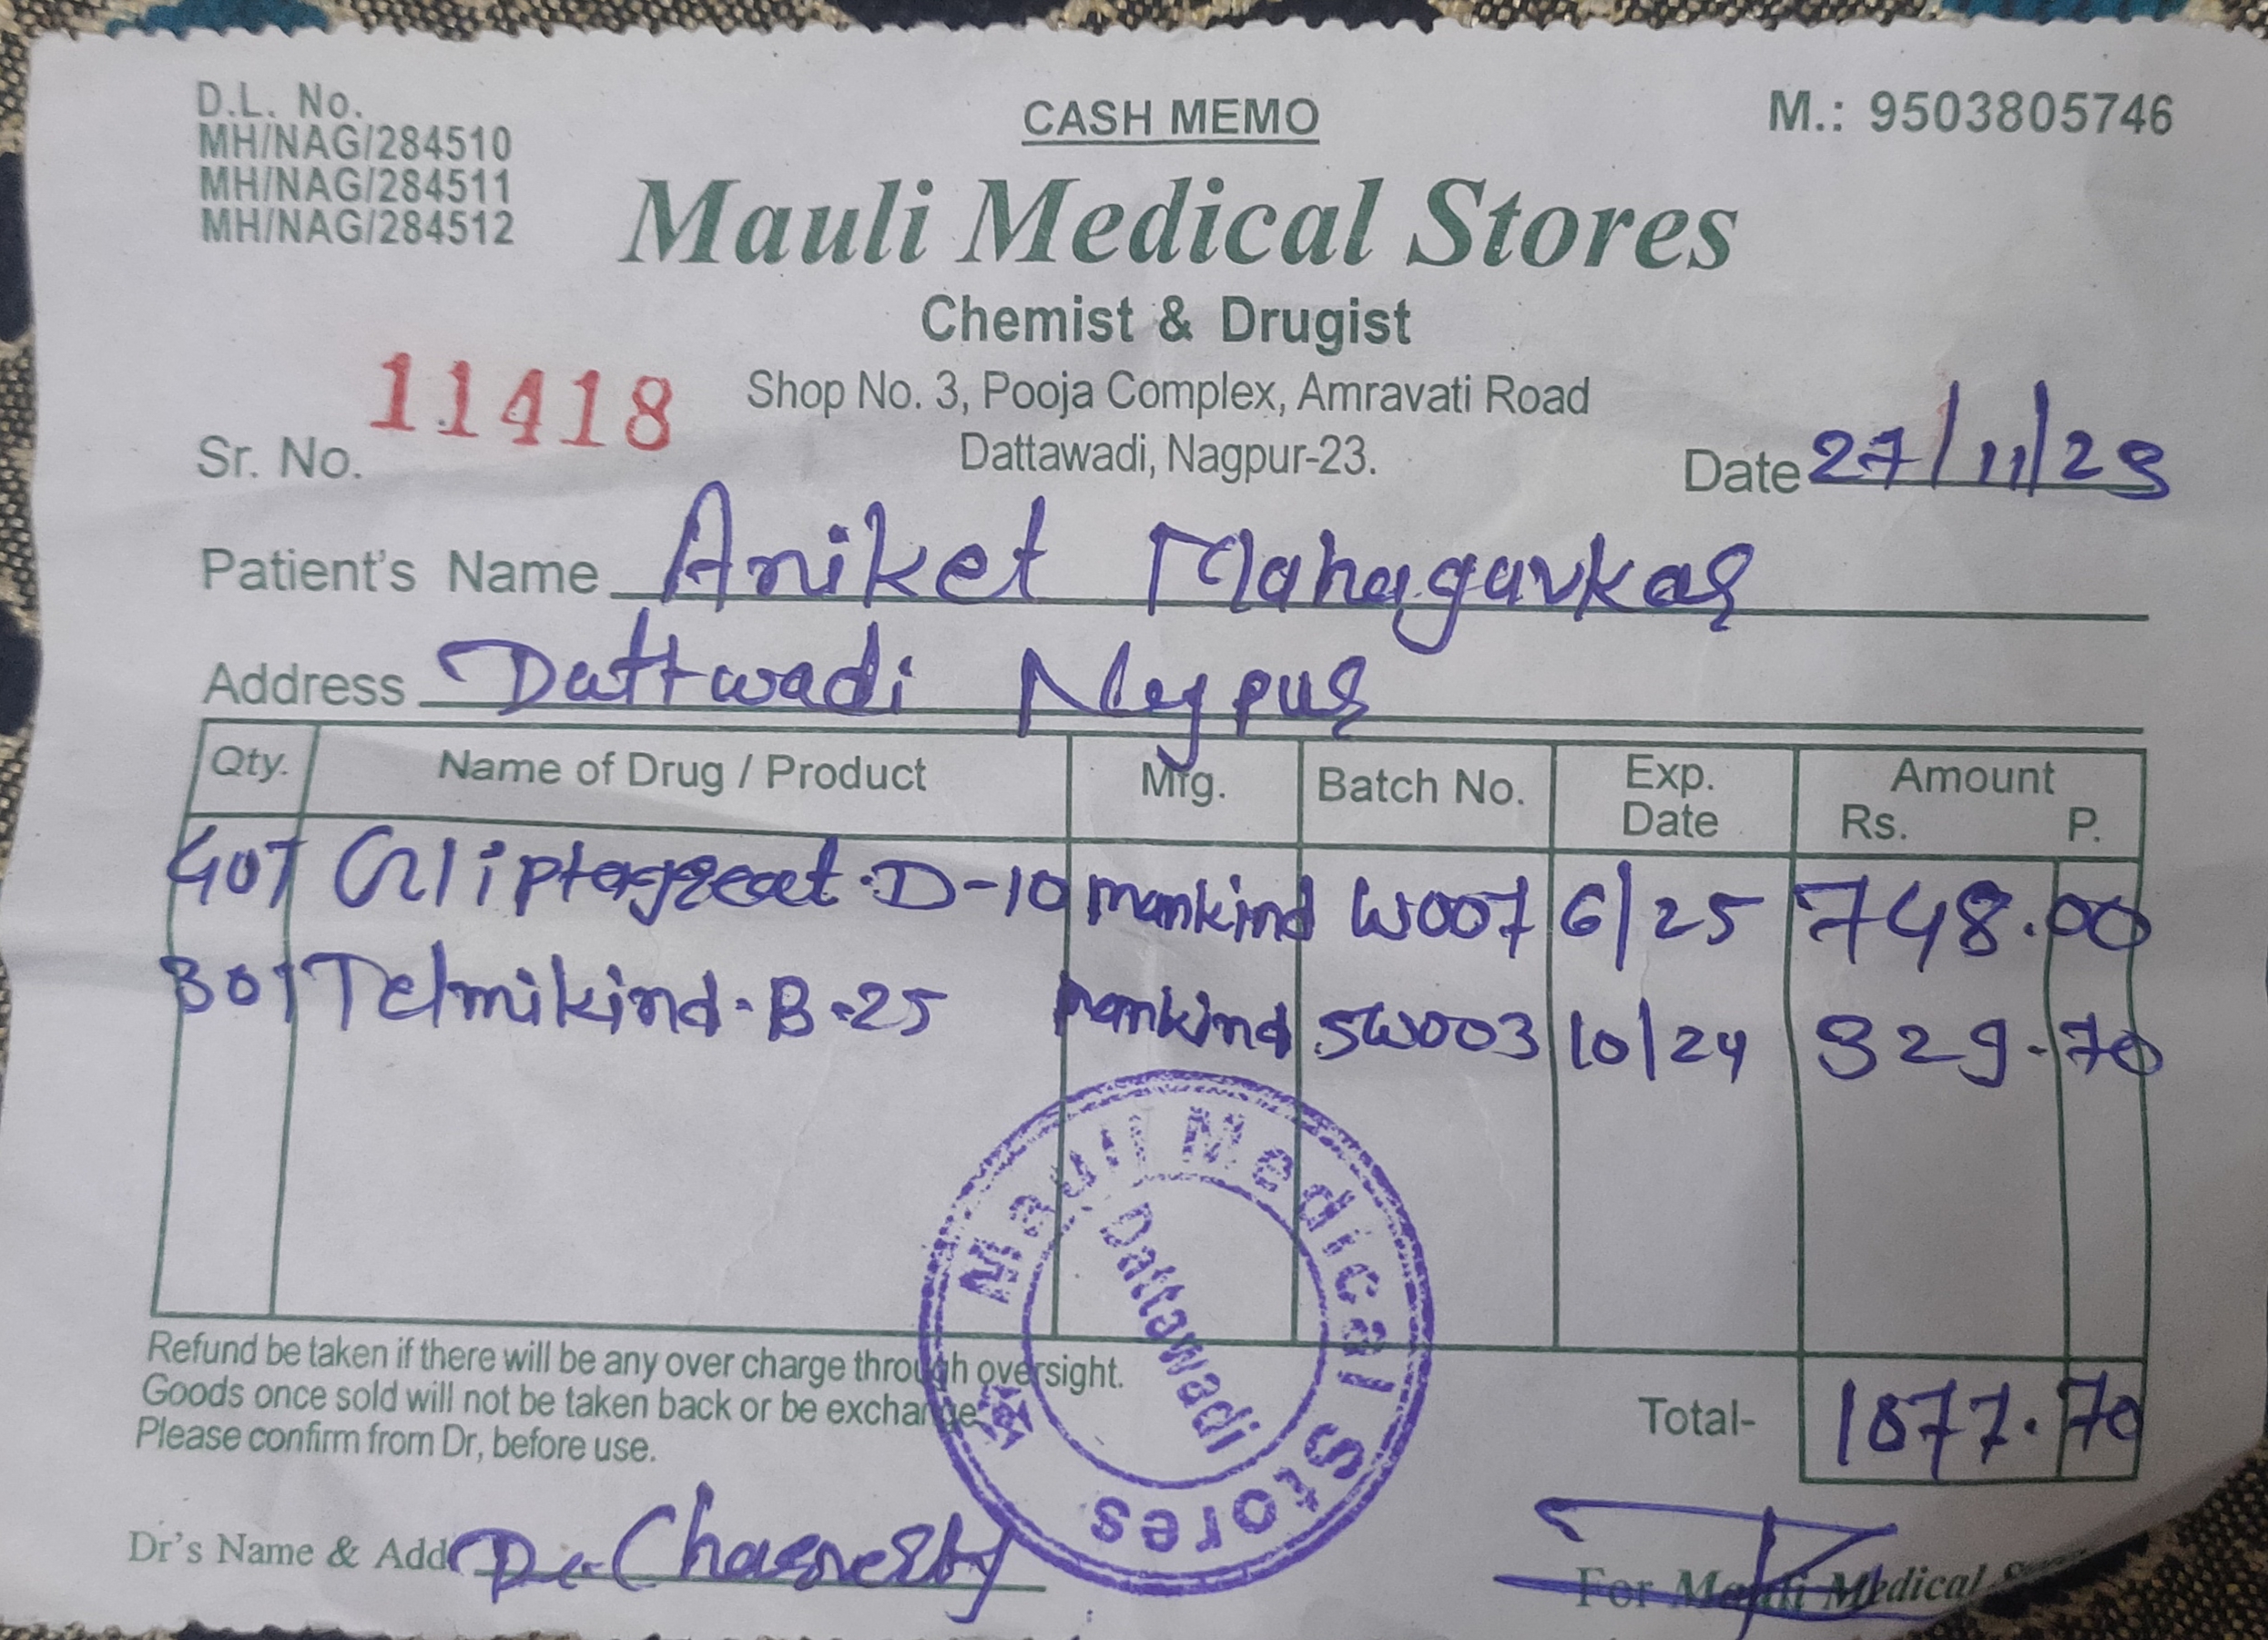 D.L. No.
MH/NAG/284510
MH/NAG/284511
MH/NAG/284512
CASH MEMO
M.: 9503805746
Mauli Medical Stores
Chemist & Drugist
Shop No. 3, Pooja Complex, Amravati Road
Dattawadi, Nagpur-23.
Sr. No. 11418
Date 27/11/23
Patient's Name Aniket Mahagavkar
Address Dattwadi Nagpur
Qty. Name of Drug / Product Mfg. Batch No. Exp. Date Amount Rs. P.
40T D-10 mankind W007 6/25 748.00
30T Telmikind-B-25 mankind SW003 10/24 329.70
Refund be taken if there will be any over charge through oversight.
Goods once sold will not be taken back or be exchange
Please confirm from Dr, before use.
Total- 1077.70
Mauli Medical Stores
Dattawadi
Dr's Name & Add Dr.
For Mauli Medical